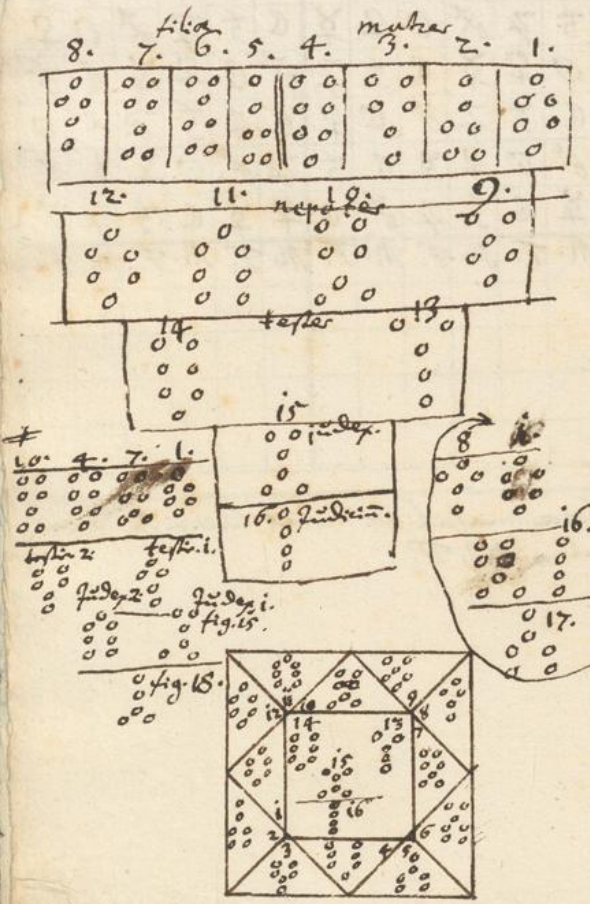 filiæ matres
8. 7. 6. 5. 4. 3. 2. 1.
12. 11. 10. 9.
nepotes
14 testes 13
15
judex.
16. Judiciũ.
10. 4. 7. 1.
testis 2. testis. 1.
Judex 2. Judex i.
fig. 15.
fig. 18.
8
16.
17.
12 11 10 9 8
14 13 7
15
16
1
2 3 4 5 6